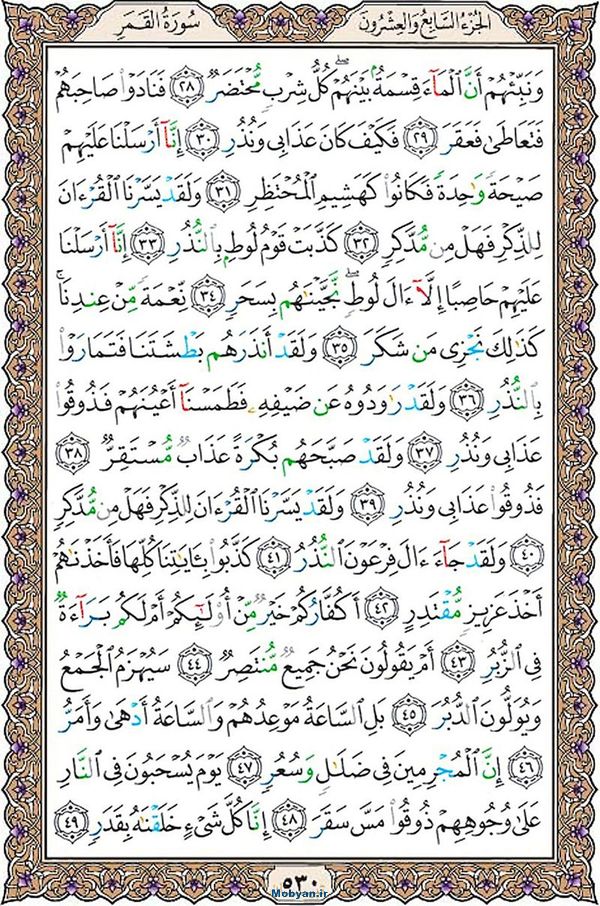 سُورَةُ القَمَر
الجُزءُ السَّابِعُ وَالعِشْرُونَ
وَنَبِّئْهُمْ أَنَّ ٱلْمَآءَ قِسْمَةٌۢ بَيْنَهُمْۖ كُلُّ شِرْبٍۢ مُّحْتَضَرٌۭ ﴿٢٨﴾ فَنَادَوْا۟ صَاحِبَهُمْ
فَتَعَاطَىٰ فَعَقَرَ ﴿٢٩﴾ فَكَيْفَ كَانَ عَذَابِى وَنُذُرِ ﴿٣٠﴾ إِنَّآ أَرْسَلْنَا عَلَيْهِمْ
صَيْحَةًۭ وَٰحِدَةًۭ فَكَانُوا۟ كَهَشِيمِ ٱلْمُحْتَظِرِ ﴿٣١﴾ وَلَقَدْ يَسَّرْنَا ٱلْقُرْءَانَ
لِلذِّكْرِ فَهَلْ مِن مُّدَّكِرٍۢ ﴿٣٢﴾ كَذَّبَتْ قَوْمُ لُوطٍۭ بِٱلنُّذُرِ ﴿٣٣﴾ إِنَّآ أَرْسَلْنَا
عَلَيْهِمْ حَاصِبًا إِلَّآ ءَالَ لُوطٍۢۖ نَّجَّيْنَٰهُم بِسَحَرٍۢ ﴿٣٤﴾ نِّعْمَةًۭ مِّنْ عِندِنَاۚ
كَذَٰلِكَ نَجْزِى مَن شَكَرَ ﴿٣٥﴾ وَلَقَدْ أَنذَرَهُم بَطْشَتَنَا فَتَمَارَوْا۟
بِٱلنُّذُرِ ﴿٣٦﴾ وَلَقَدْ رَٰوَدُوهُ عَن ضَيْفِهِۦ فَطَمَسْنَآ أَعْيُنَهُمْ فَذُوقُوا۟
عَذَابِى وَنُذُرِ ﴿٣٧﴾ وَلَقَدْ صَبَّحَهُم بُكْرَةً عَذَابٌۭ مُّسْتَقِرٌّۭ ﴿٣٨﴾
فَذُوقُوا۟ عَذَابِى وَنُذُرِ ﴿٣٩﴾ وَلَقَدْ يَسَّرْنَا ٱلْقُرْءَانَ لِلذِّكْرِ فَهَلْ مِن مُّدَّكِرٍۢ
﴿٤٠﴾ وَلَقَدْ جَآءَ ءَالَ فِرْعَوْنَ ٱلنُّذُرُ ﴿٤١﴾ كَذَّبُوا۟ بِـَٔايَٰتِنَا كُلِّهَا فَأَخَذْنَٰهُمْ
أَخْذَ عَزِيزٍۢ مُّقْتَدِرٍ ﴿٤٢﴾ أَكُفَّارُكُمْ خَيْرٌۭ مِّنْ أُو۟لَٰٓئِكُمْ أَمْ لَكُم بَرَآءَةٌۭ
فِى ٱلزُّبُرِ ﴿٤٣﴾ أَمْ يَقُولُونَ نَحْنُ جَمِيعٌۭ مُّنتَصِرٌۭ ﴿٤٤﴾ سَيُهْزَمُ ٱلْجَمْعُ
وَيُوَلُّونَ ٱلدُّبُرَ ﴿٤٥﴾ بَلِ ٱلسَّاعَةُ مَوْعِدُهُمْ وَٱلسَّاعَةُ أَدْهَىٰ وَأَمَرُّ
﴿٤٦﴾ إِنَّ ٱلْمُجْرِمِينَ فِى ضَلَٰلٍۢ وَسُعُرٍۢ ﴿٤٧﴾ يَوْمَ يُسْحَبُونَ فِى ٱلنَّارِ
عَلَىٰ وُجُوهِهِمْ ذُوقُوا۟ مَسَّ سَقَرَ ﴿٤٨﴾ إِنَّا كُلَّ شَىْءٍ خَلَقْنَٰهُ بِقَدَرٍۢ ﴿٤٩﴾
٥٣٠
Mobyan.ir